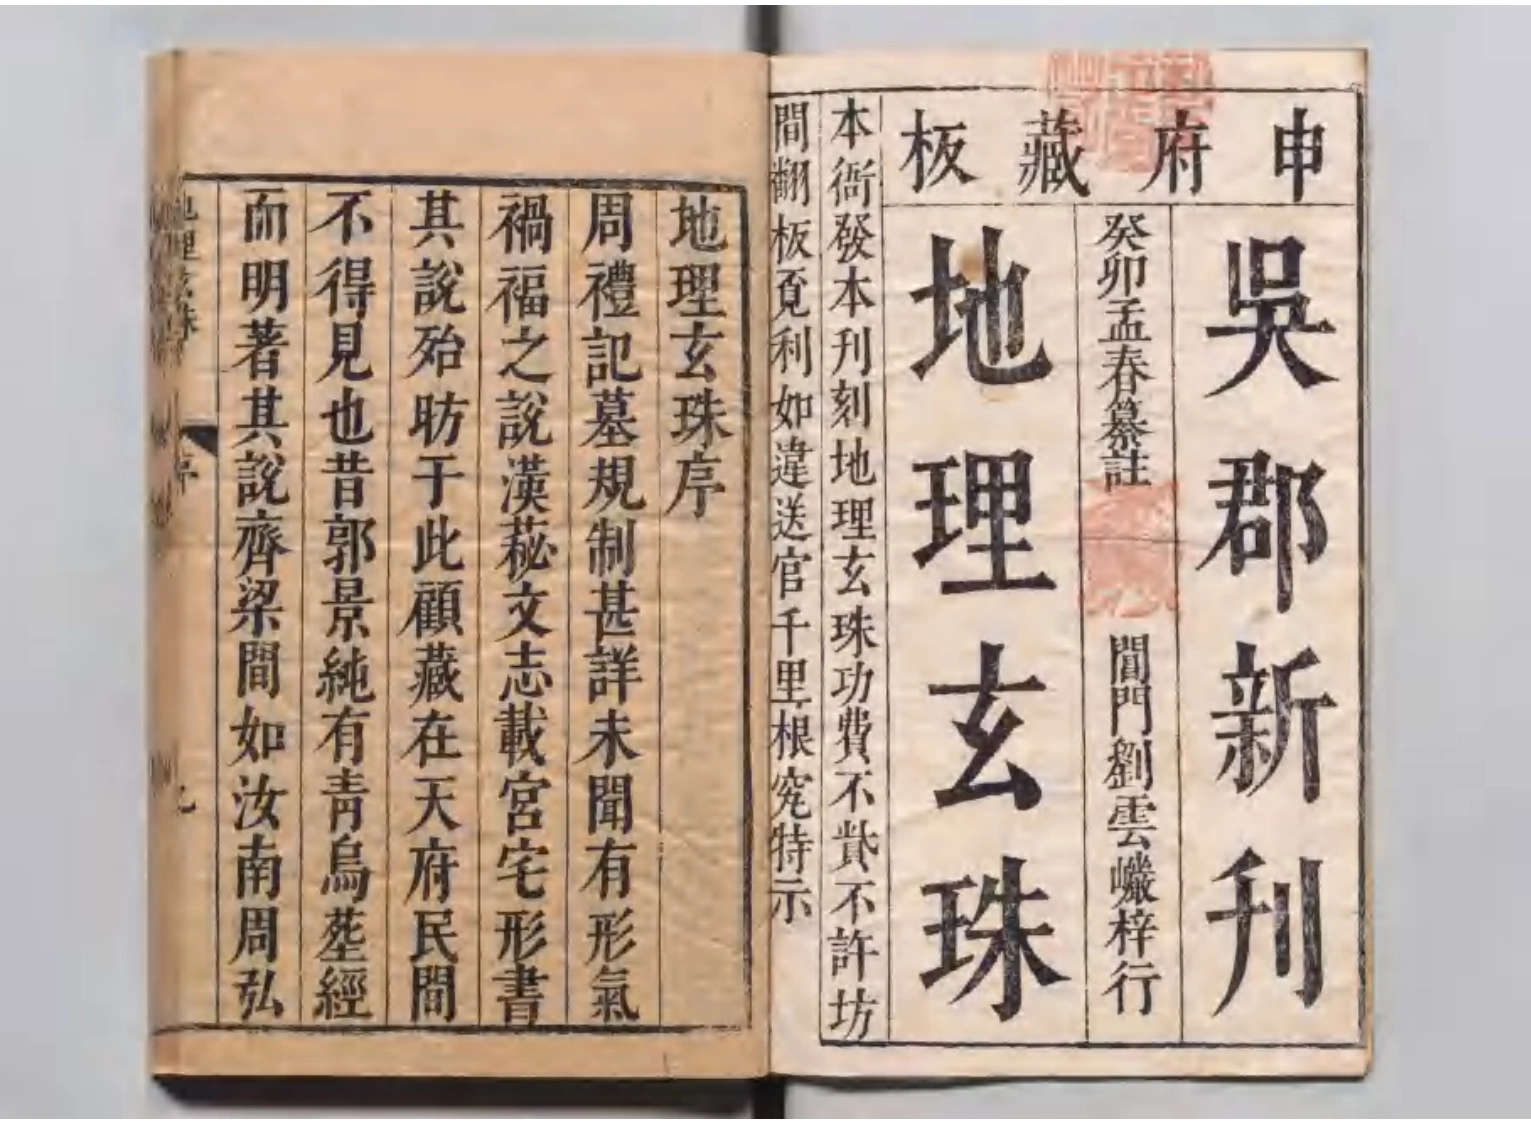 申府藏板
吳郡新刋
癸卯孟春纂註
閶門劉雲巖梓行
地理玄珠
本衙發本刋刻地理玄珠功費不貲不許坊
間翻板覓利如違送官千里根究特示
地理玄珠序
周禮記墓規制甚詳未聞有形氣
禍福之說漢蓺文志載宮宅形書
其說殆昉于此顧藏在天府民間
不得見也昔郭景純有青烏塟經
而明著其說齊梁間如汝南周弘